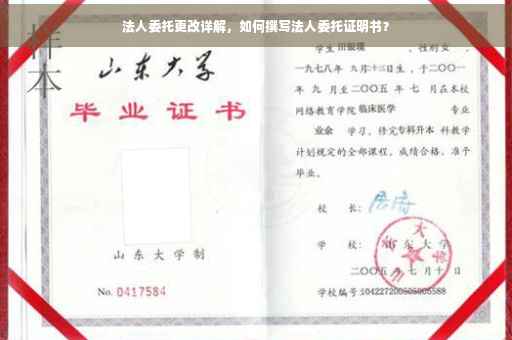 法人委托更改详解，如何撰写法人委托证明书？
样本
山东大学
毕业证书
山东大学制
No. 0417584
学生田银瑛 ，性别女 ，
一九七八年 九月十三日生，于二〇〇一
年 九 月至二〇〇五 年 七 月在本校
网络教育学院临床医学 专业
业余 学习，修完专科升本 科教学
计划规定的全部课程，成绩合格，准予
毕业。
校 长：
学 校：山东大学
二〇〇五 年 七 月 十 日
学校编号：104227200505005588